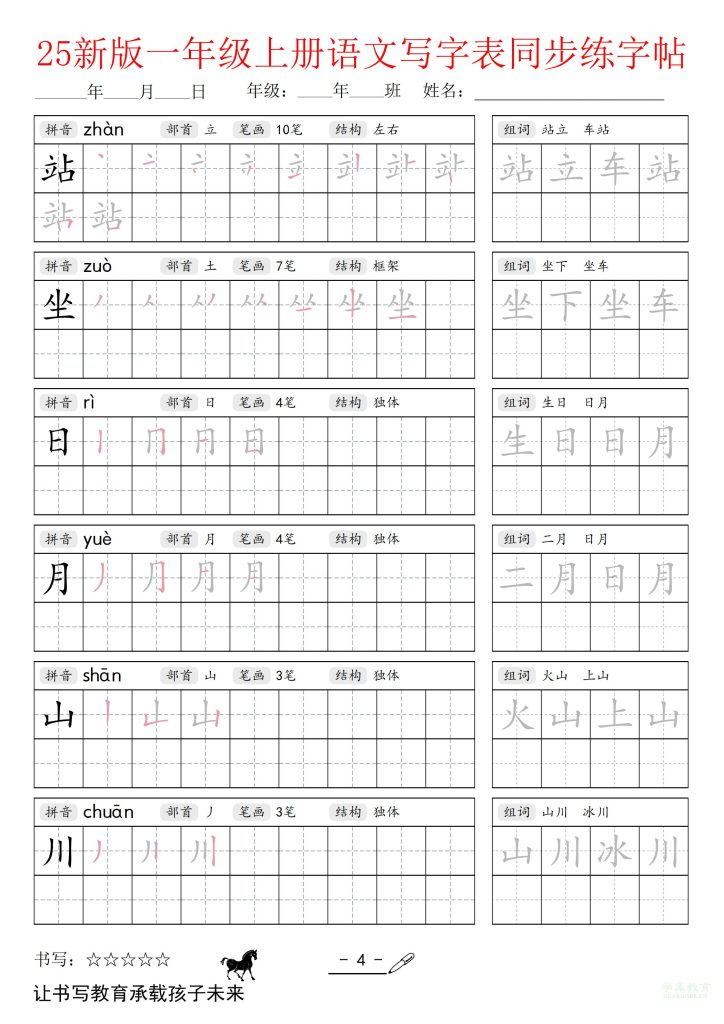 25新版一年级上册语文写字表同步练字帖
______年____月____日 年级：____年____班 姓名：______________________
拼音 zhàn 部首 立 笔画 10笔 结构 左右 组词 站立 车站
站 站 立 车 站
站 站
拼音 zuò 部首 土 笔画 7笔 结构 框架 组词 坐下 坐车
坐 坐 坐 下 坐 车
拼音 rì 部首 日 笔画 4笔 结构 独体 组词 生日 日月
日 日 生 日 日 月
拼音 yuè 部首 月 笔画 4笔 结构 独体 组词 二月 日月
月 月 二 月 日 月
拼音 shān 部首 山 笔画 3笔 结构 独体 组词 火山 上山
山 山 火 山 上 山
拼音 chuān 部首 丿 笔画 3笔 结构 独体 组词 山川 冰川
川 川 山 川 冰 川
书写：☆☆☆☆☆ - 4 -
让书写教育承载孩子未来